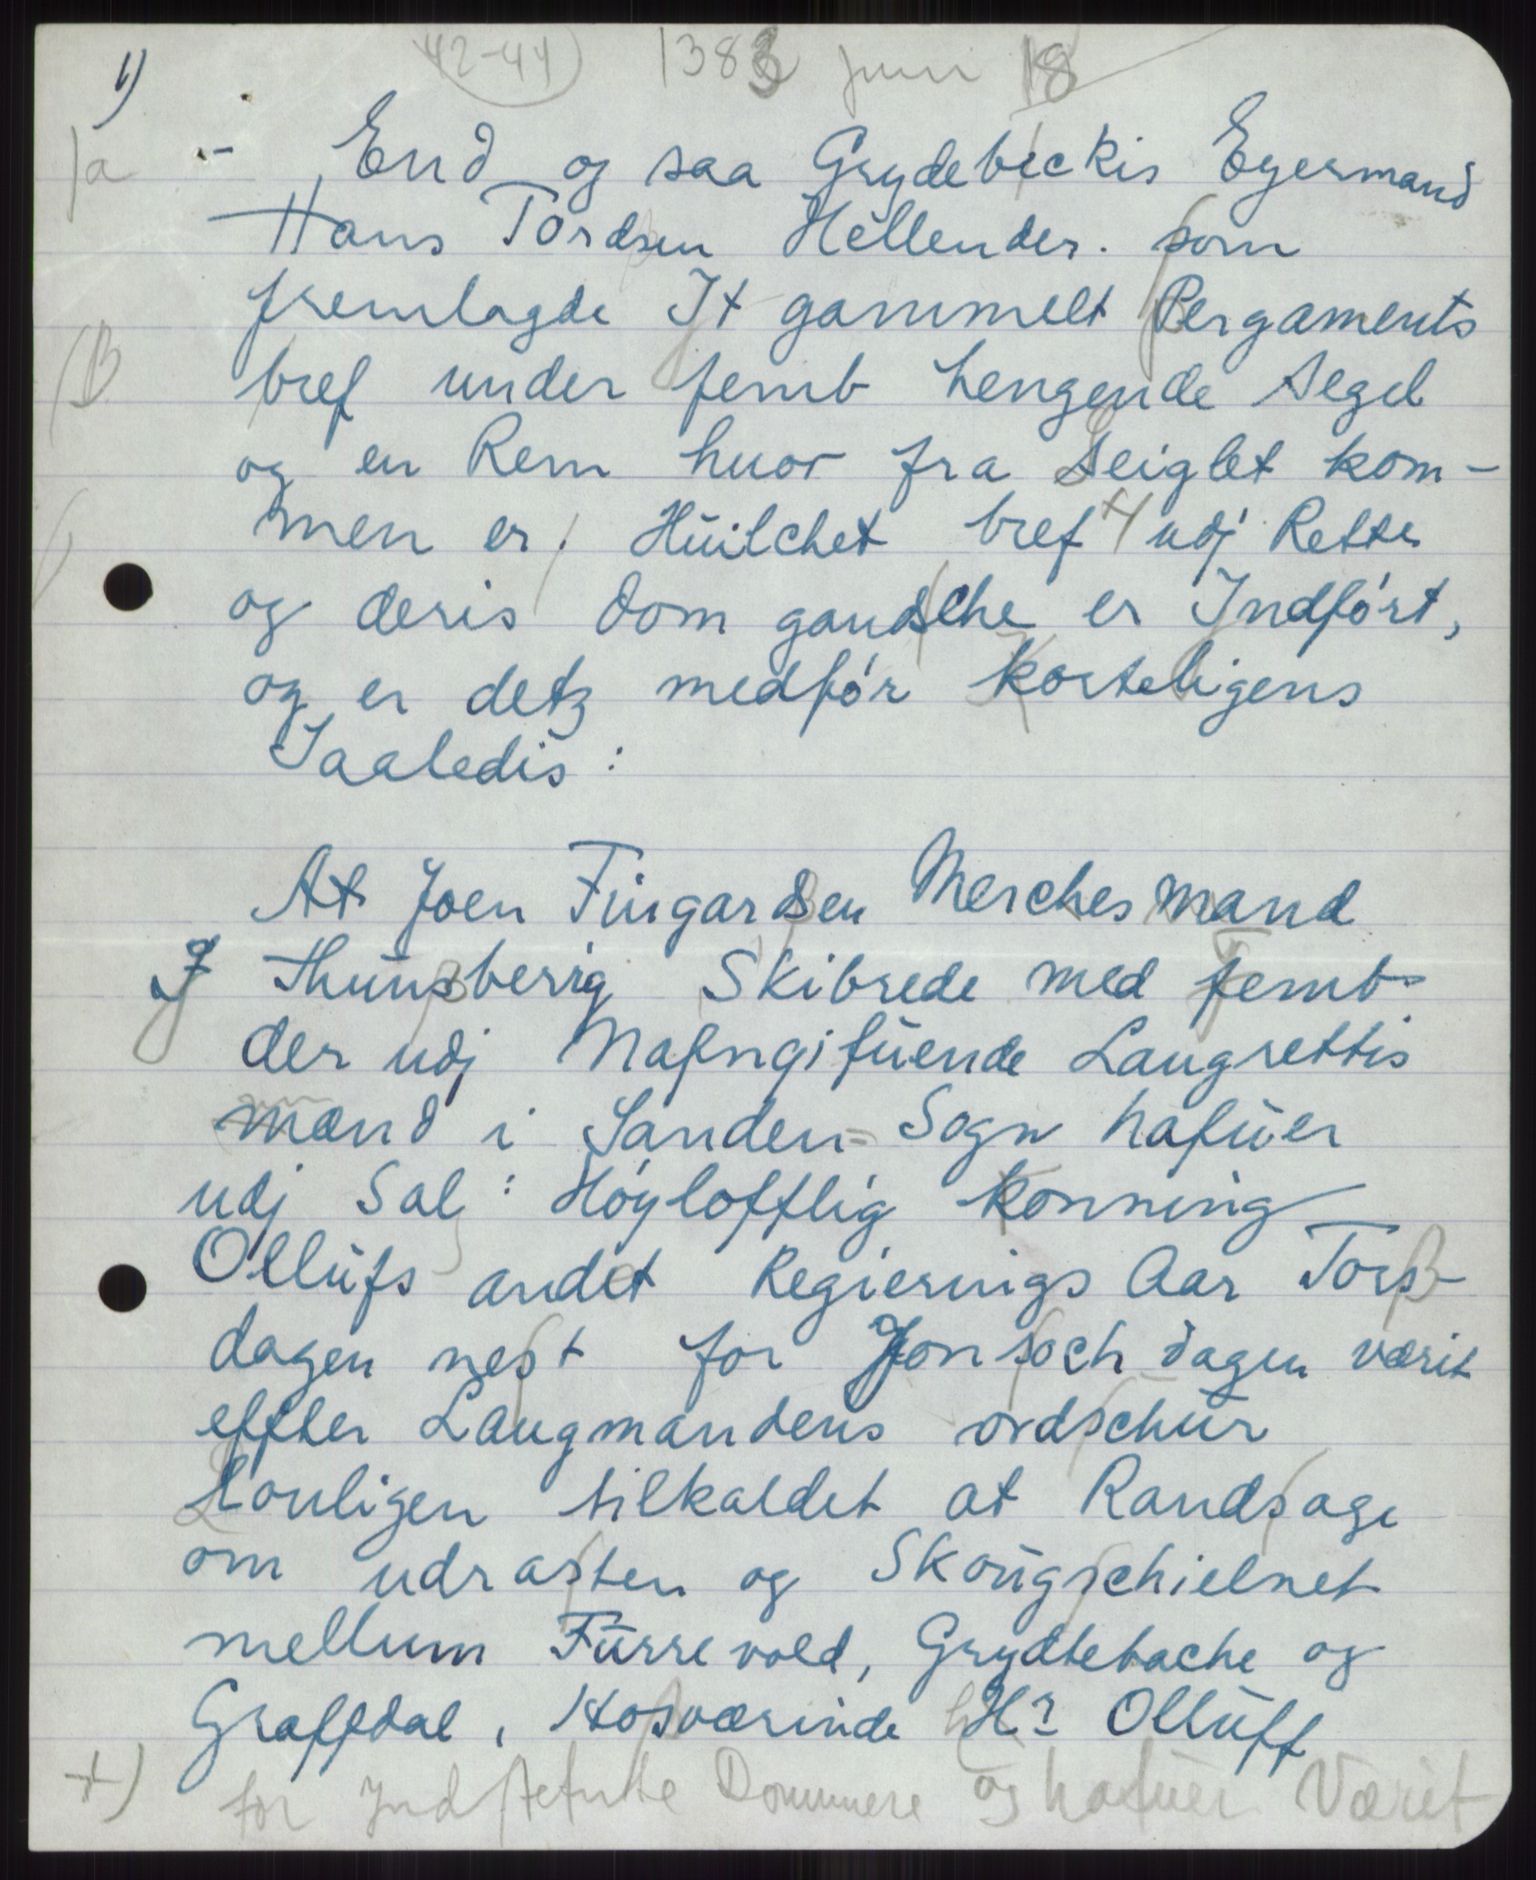 42-44) 1383 juni 18
1)
a - End og saa Grydebeckis Eyermand
Hans Tordsen Hellender. som
fremlagde It gammelt Pergaments
bref under femb hengende segel
og en Rem huor fra Seiglet kom-
men er. Hŭilchet bref +) udj Rette
og deris Dom gandsche er Indført,
og er detz medfør korteligens
Saaledis:
At Joen Fingardsen Merchesmand
J Thŭnsberrig Skibrede med femb
der udj Nafngifŭende Laugrettis
mænd i Sanden= Sogn hafŭer
udj Sal: Høylofflig konning
Ollŭfs andet Regierings Aar Tors-
dagen nest for Jonsoch dagen værit
effter Laugmandens ordschŭr
Louligen tilkaldet at Randsage
om udrasten og Skoŭgschielnet
mellum Fŭrrevold, Grydtebache og
Graffdal, Hosværinde Hr Ollŭff
+) for Indstefnte Dommere og hafuer Værit